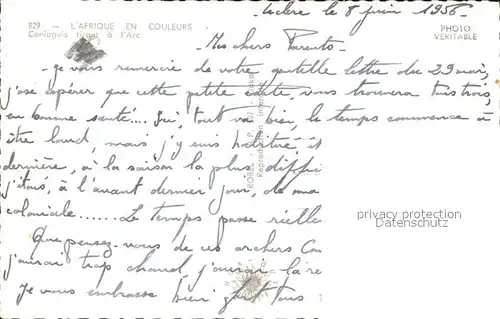 829 - L'AFRIQUE EN COULEURS
Coniaguis tirant à l'Arc
le 8 juin 1956 -
PHOTO
VÉRITABLE
Mes chers Parents -
Je vous remercie de votre gentille lettre du 29 mai,
j'ose espérer que cette petite carte, vous trouvera tous trois,
en bonne santé.... Ici, tout va bien, le temps commence à
être lourd, mais j'y suis habitué, et
dernière, à la saison la plus diffi
j'étais, à l'avant dernier jour, de ma
coloniale....... Le temps passe réelle
privacy protection
DatenSchutz
Que pensez-vous de ces archers Con
j'aurai trop chaud, j'aurai
Je vous embrasse bien fort tous